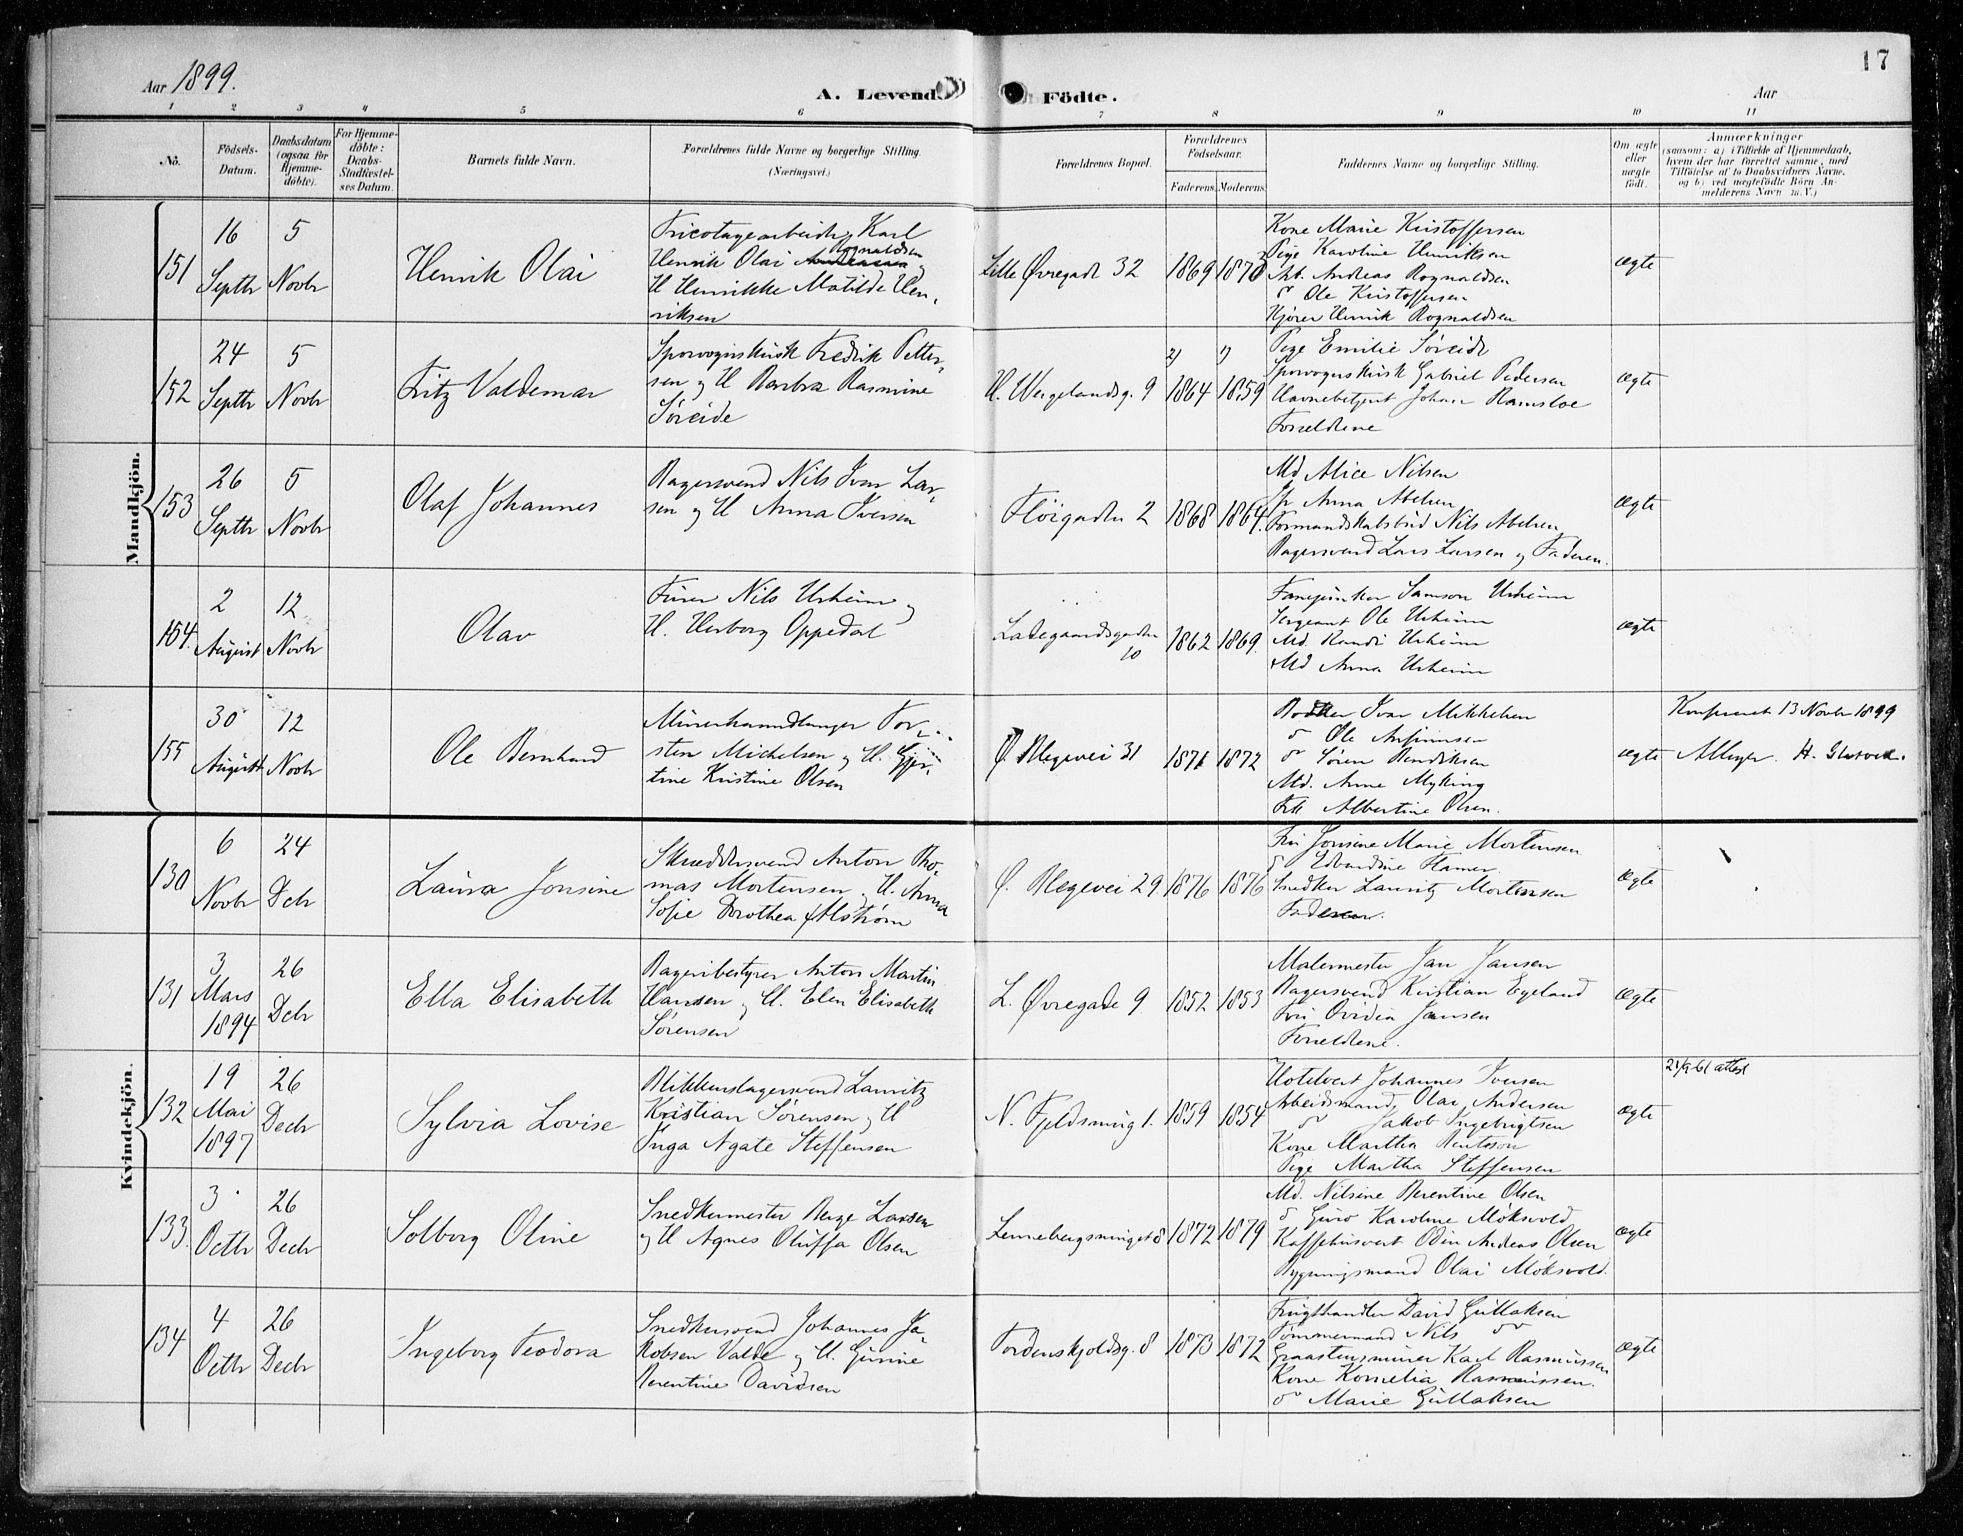 17
Aar 1899.
A. Levende Födte.
Aar
1 2 3 4 5 6 7 8 9 10 11
No.
Födsels-Datum.
Daabsdatum (ogsaa for Hjemme-döbte).
For Hjemme-döbte: Daabs-Stadfæstel-ses Datum.
Barnets fulde Navn.
Forældrenes fulde Navne og borgerlige Stilling. (Næringsvei.)
Forældrenes Bopæl.
Forældrenes Fødselsaar.
Faderens. Moderens.
Faddernes Navne og borgerlige Stilling.
Om ægte eller uægte født.
Anmærkninger
(saasom: a) i Tilfælde af Hjemmedaab,
hvem der har forrettet samme, med
Tilföielse af to Daabsvidners Navne,
og b) ved uægtefödte Börn An-
melderens Navn m. V.)
Mandkjön.
151
16 Septbr
5 Novbr
Henrik Olai
Tricotagearbeider Karl
Henrik Olai Rognaldsen
H Henrikke Matilde Hen-
riksen
Lille Øvregade 32
1869 1870
Kone Marie Kristoffersen
Pige Karoline Henriksen
Andreas Rognaldsen
do Ole Kristoffersen
Kjører Henrik Rognaldsen
ægte
152
24 Septbr
5 Novbr
Fritz Valdemar
Sporvognskusk Fredrik Petter-
sen og H Barbra Rasmine
Søreide
H. Wergelandsg. 9
2) 1864 1) 1859
Pige Emilie Søreide
Sporvognskusk Gabriel Pedersen
Havnebetjent Johan Ramsloe
Forældrene
ægte
153
26 Septbr
5 Novbr
Olaf Johannes
Bagersvend Nils Ivar Lar-
sen og H Anna Iversen
Fløigaden 2
1868 1864.
Md Alice Nilsen
Anna Abelsen
Formandskabsbud Nils Abelsen
Bagersvend Lars Larsen og Faderen.
ægte
154.
2 August
12 Novbr
Olav
Furer Nils Urheim og
H. Herborg Oppedal
Ladegaardsgaden 10
1862 1869.
Fanejunker Samson Urheim
Sergeant Ole Urheim
Md. Randi Urheim
Md Anna Urheim
ægte
155
30 August
12 Novbr
Ole Bernhard
Murerhaandlanger Tor-
sten Michelsen og H. Gjer-
tine Kristine Olsen
Ø. Blegevei 31
1871 1872
Ivar Mikkelsen
do Ole
do Søren Bendiksen
Md. Anne Myking
Frk Albertine Olsen.
ægte
13 Novbr 1899
Kvindekjön.
130
6 Novbr
24 Dcbr
Laura Jonsine
Skræddersvend Anton Tho-
mas Mortensen, H. Anna
Sofie Dorothea Ahlstrøm
Ø. Blegevei 29.
1876 1876
Fru Jonsine Marie Mortensen
Snedker Lauritz Mortensen
Faderen.
ægte
131
3 Mars 1894
26 Dcbr
Ella Elisabeth
Bageribestyrer Anton Martin
Hansen og H. Elen Elisabeth
Sørensen
L. Øvregade 9
1852 1853
Malermester Jan Jansen
Bagersvend Kristian Egeland
Fru Ovidia Jansen
Forældrene.
ægte
132
19 Mai 1897
26 Decbr
Sylvia Lovise
Blikkenslagersvend Lauritz
Kristian Sørensen og H
Inga Agate Steffensen
N. Fjeldsmug 1.
1859 1854
Hotelvert Johannes Iversen
Arbeidsmand Olai Andersen
do Jakob Ingebrigtsen
Kone Martha Berntson
Pige Martha Steffensen
ægte
21/9-61 attest
133.
3 Octbr
26 Decbr
Solborg Oline
Snedkermester Berge Larsen
og H Agnes Oluffa Olsen
Lennebergsmuget 8
1872 1879
Md. Nilsine Berentine Olsen
do Guro Karoline Møksvold
Kaffehusvert Odin Andreas Olsen
Bygningsmand Olai Møksvold.
ægte
134
4 Octbr
26 Decbr
Ingeborg Teodora
Snedkersvend Johannes Ja-
kobsen Valde og H. Gurine
Berentine Davidsen
Tordenskjoldsg. 8
1873 1872
Frugthandler David Gullaksen
Tømmermand Nils do
Graastensmurer Karl Rasmussen
Kone Kornelia Rasmussen.
do Marie Gullaksen
ægte